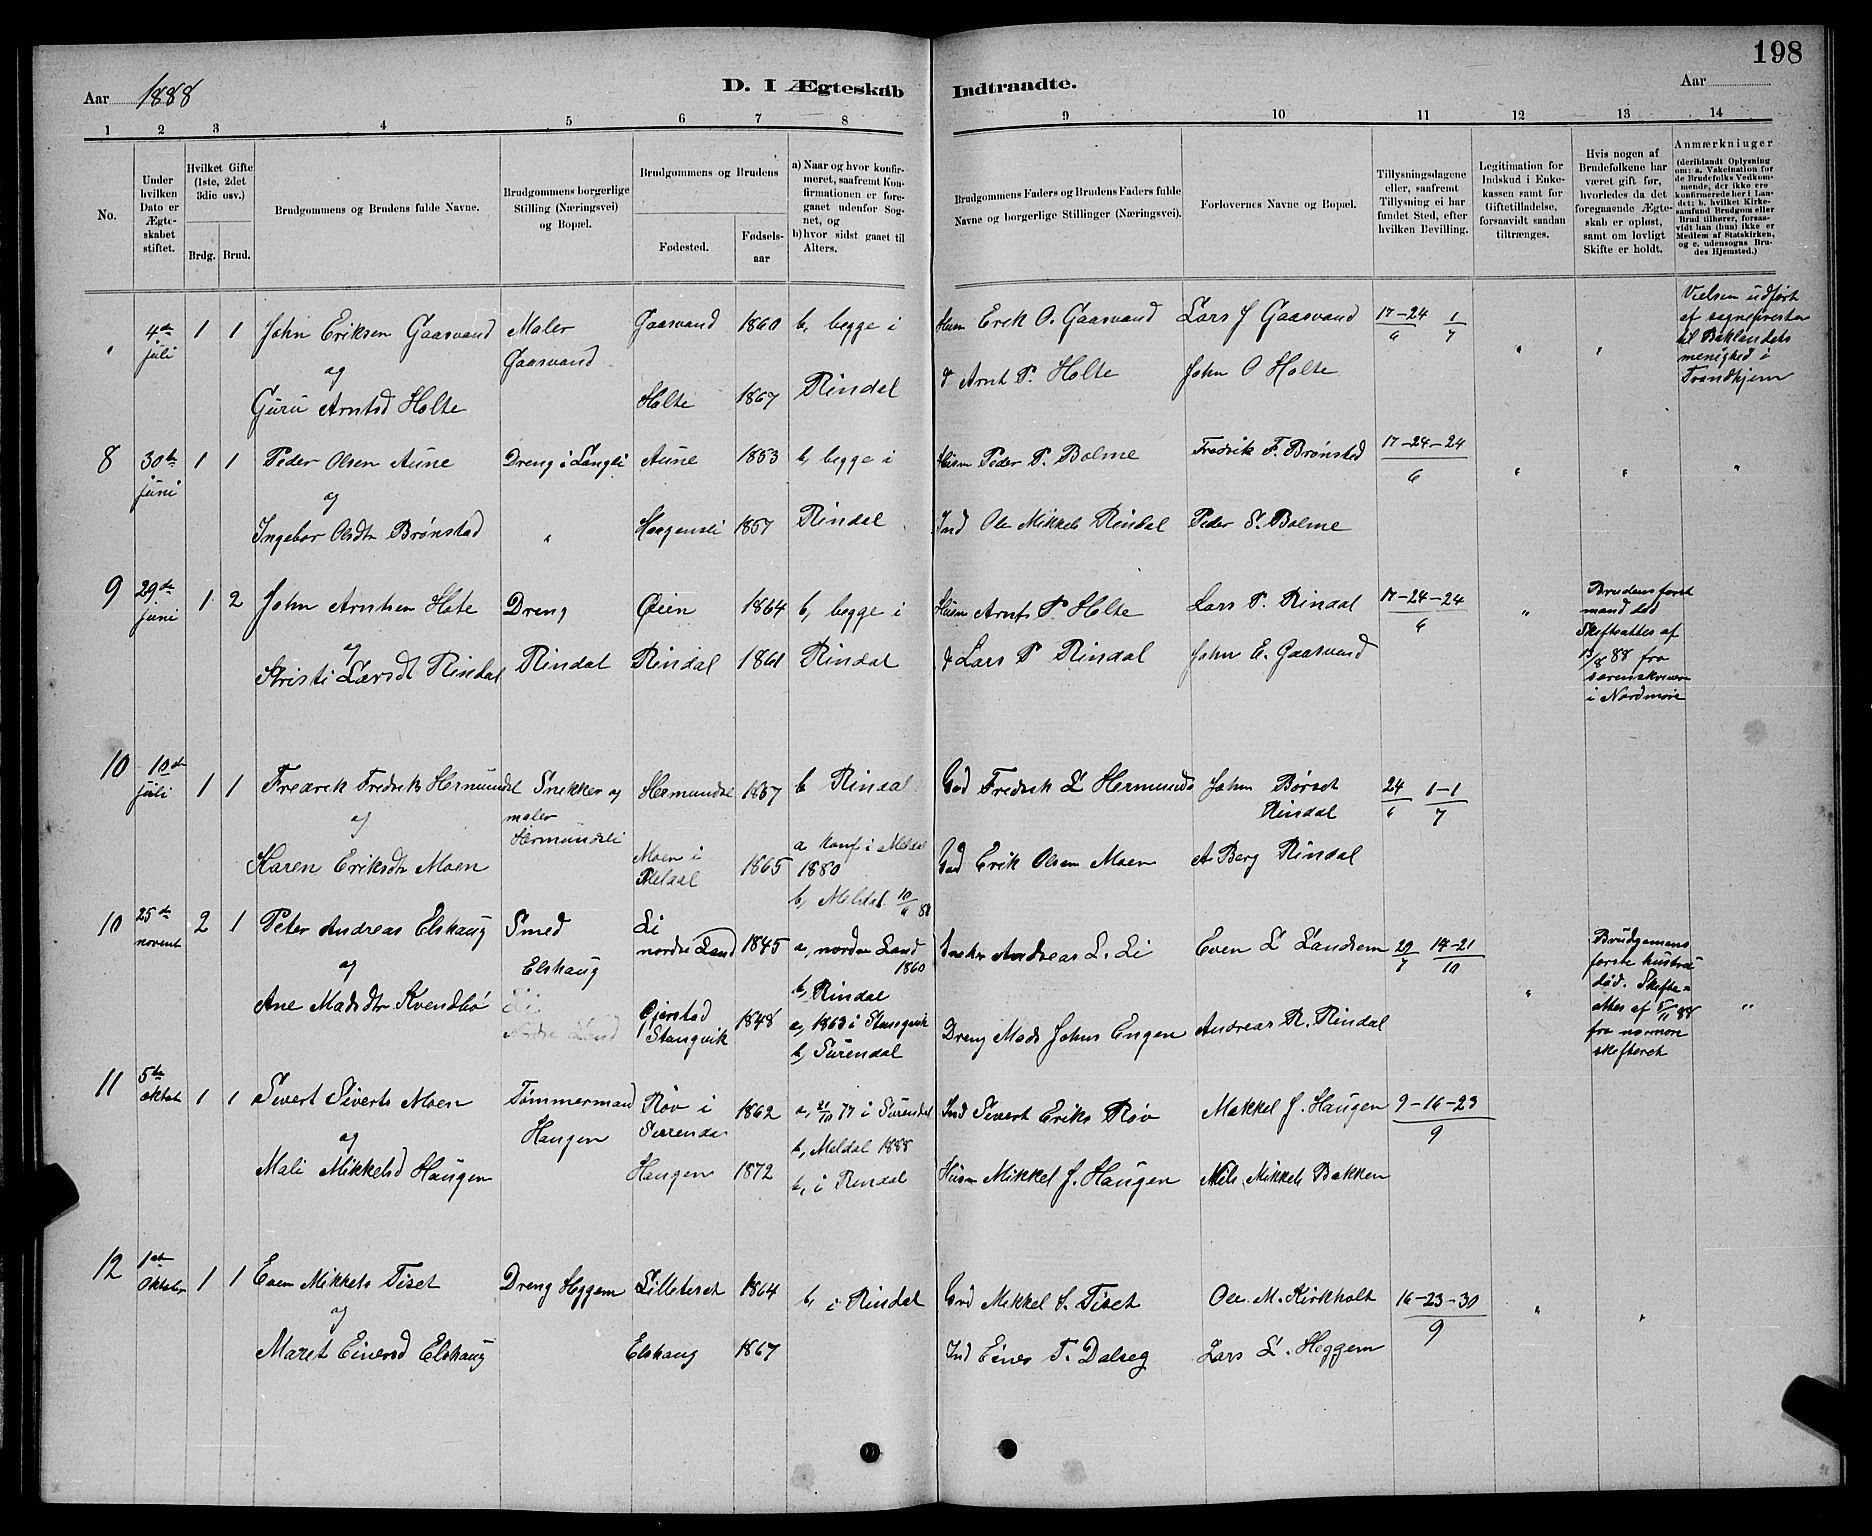 198
Aar 1888
D. I Ægteskab Indtraadte.
Aar
1 2 3 4 5 6 7 8 9 10 11 12 13 14
No.
Under hvilken Dato er Ægteskabet stiftet.
Hvilket Gifte (1ste, 2det 3die osv.)
Brdg. Brud.
Brudgommens og Brudens fulde Navne.
Brudgommens borgerlige Stilling (Næringsvei) og Bopæl.
Brudgommens og Brudens
Fødested. Fødselsaar
a) Naar og hvor konfirmeret, saafremt Konfirmationen er foregaaet udenfor Sognet, og
b) hvor sidst gaaet til Alters.
Brudgommens Faders og Brudens Faders fulde Navne og borgerlige Stillinger (Næringsvei).
Forlovernes Navne og Bopæl.
Tillysningsdagene eller, saafremt Tillysning ei har fundet Sted, efter hvilken Bevilling.
Legitimation for Indskud i Enkekassen samt for Giftetilladelse, forsaavidt saadan tiltrænges.
Hvis nogen af Brudefolkene har været gift før, hvorledes da det foregaaende Ægteskab er opløst, samt om lovligt Skifte er holdt.
Anmærkninger (deriblandt Oplysning om: a. Vakcination for de Brudefolks Vedkommende, der ikke ere konfirmerede her i Landet; b. hvilket Kirkesamfund Brudgom eller Brud tilhører, forsaavidt han (hun) ikke er Medlem af Statskirken, og c. udensogns Brudes Hjemsted.)
" 4de juli 1 1 John Eriksen Gaasvand Maler Gaasvand Gaasvand 1860 b, begge i Husm Erik O. Gaasvand Lars J Gaasvand 17-24/6 1/7 " "
Vielsen udført af sognepresten til Baklandets menighed i Trondhjem
og
Guru Arntsd Holte Holte 1867 Rindal d Arnt P. Holte John O Holte
8 30te juni 1 1 Peder Olsen Aune Dreng i Langli Aune 1853 b, begge i Husm Peder P. Bolme Fredrik F. Brønstad 17-24-24/6 " " "
og
Ingebor Olsdtr Brønstad " Haagensli 1857 Rindal Ind Ole Mikkels Rindal Peder S. Bolme
9 29de juni 1 2 John Arntsen Hote Dreng Øien 1864 b, begge i Husm Arnt P Holte Lars P. Rindal 17-24-24/6 "
Brudens først mand død Skifteattes af 13/8 88 fra sorenskriveren i Nordmøre
og
Kristi Larsdt Rindal Rindal Rindal 1861 Rindal d Lars P Rindal John E. Gaasvand
10 10de juli 1 1 Fredrik Fredriks Hermundsl Snekker og maler Hermundsli Hermundsl 1857 b Rindal Gbd Fredrik L Hermunds John Børset Rindal 24/6 1-1/7
og
Karen Eriksdtr Moen Moen i Meldal 1865 a konf i Meldal 1880 b, Meldal 10/6 88 Gbd Erik Olsen Moen A. Berg Rindal
10 25de novemb 2 1 Peter Andreas Elshaug Smed Elshaug Li nordre Land 1845 a, nordre Land 1860 b, Rindal Andreas L. Li Even L Landsem 29/7 14-21/10 " "
Brudgomens første hustru død. Skifteattes af 5/11 88 fra normøre skifteret
og
Ane Madsdtr Kvendbø Li Nordre Land Gjerstad Stangvik 1848 a, 1863 i Stangvik b, Surendal Dreng Mads Johns Engen Andreas R. Rindal
11 5te oktob 1 1 Sivert Siverts Moen Tømmermand Haugen Røv i Surendal 1862 a, 21/10 77 i Surendal b, Meldal 1888 Ind Sivert Eriks Røv Mikkel J. Haugen 9-16-23/9
og
Mali Mikkelsd Haugen Haugen 1872 b, i Rindal Husm Mikkel J. Haugen Nils Mikkels Bakken
12 1ste Oktober 1 1 Even Mikkels Tiset Dreng Heggem Lilletiset 1864 b, i Rindal Gbd Mikkel S. Tiset Ole M. Kirkholt 16-23-30/9 " "
og
Maret Einersd Elshaug Elshaug 1867 Ind Einer T. Dalseg Lars L. Heggem